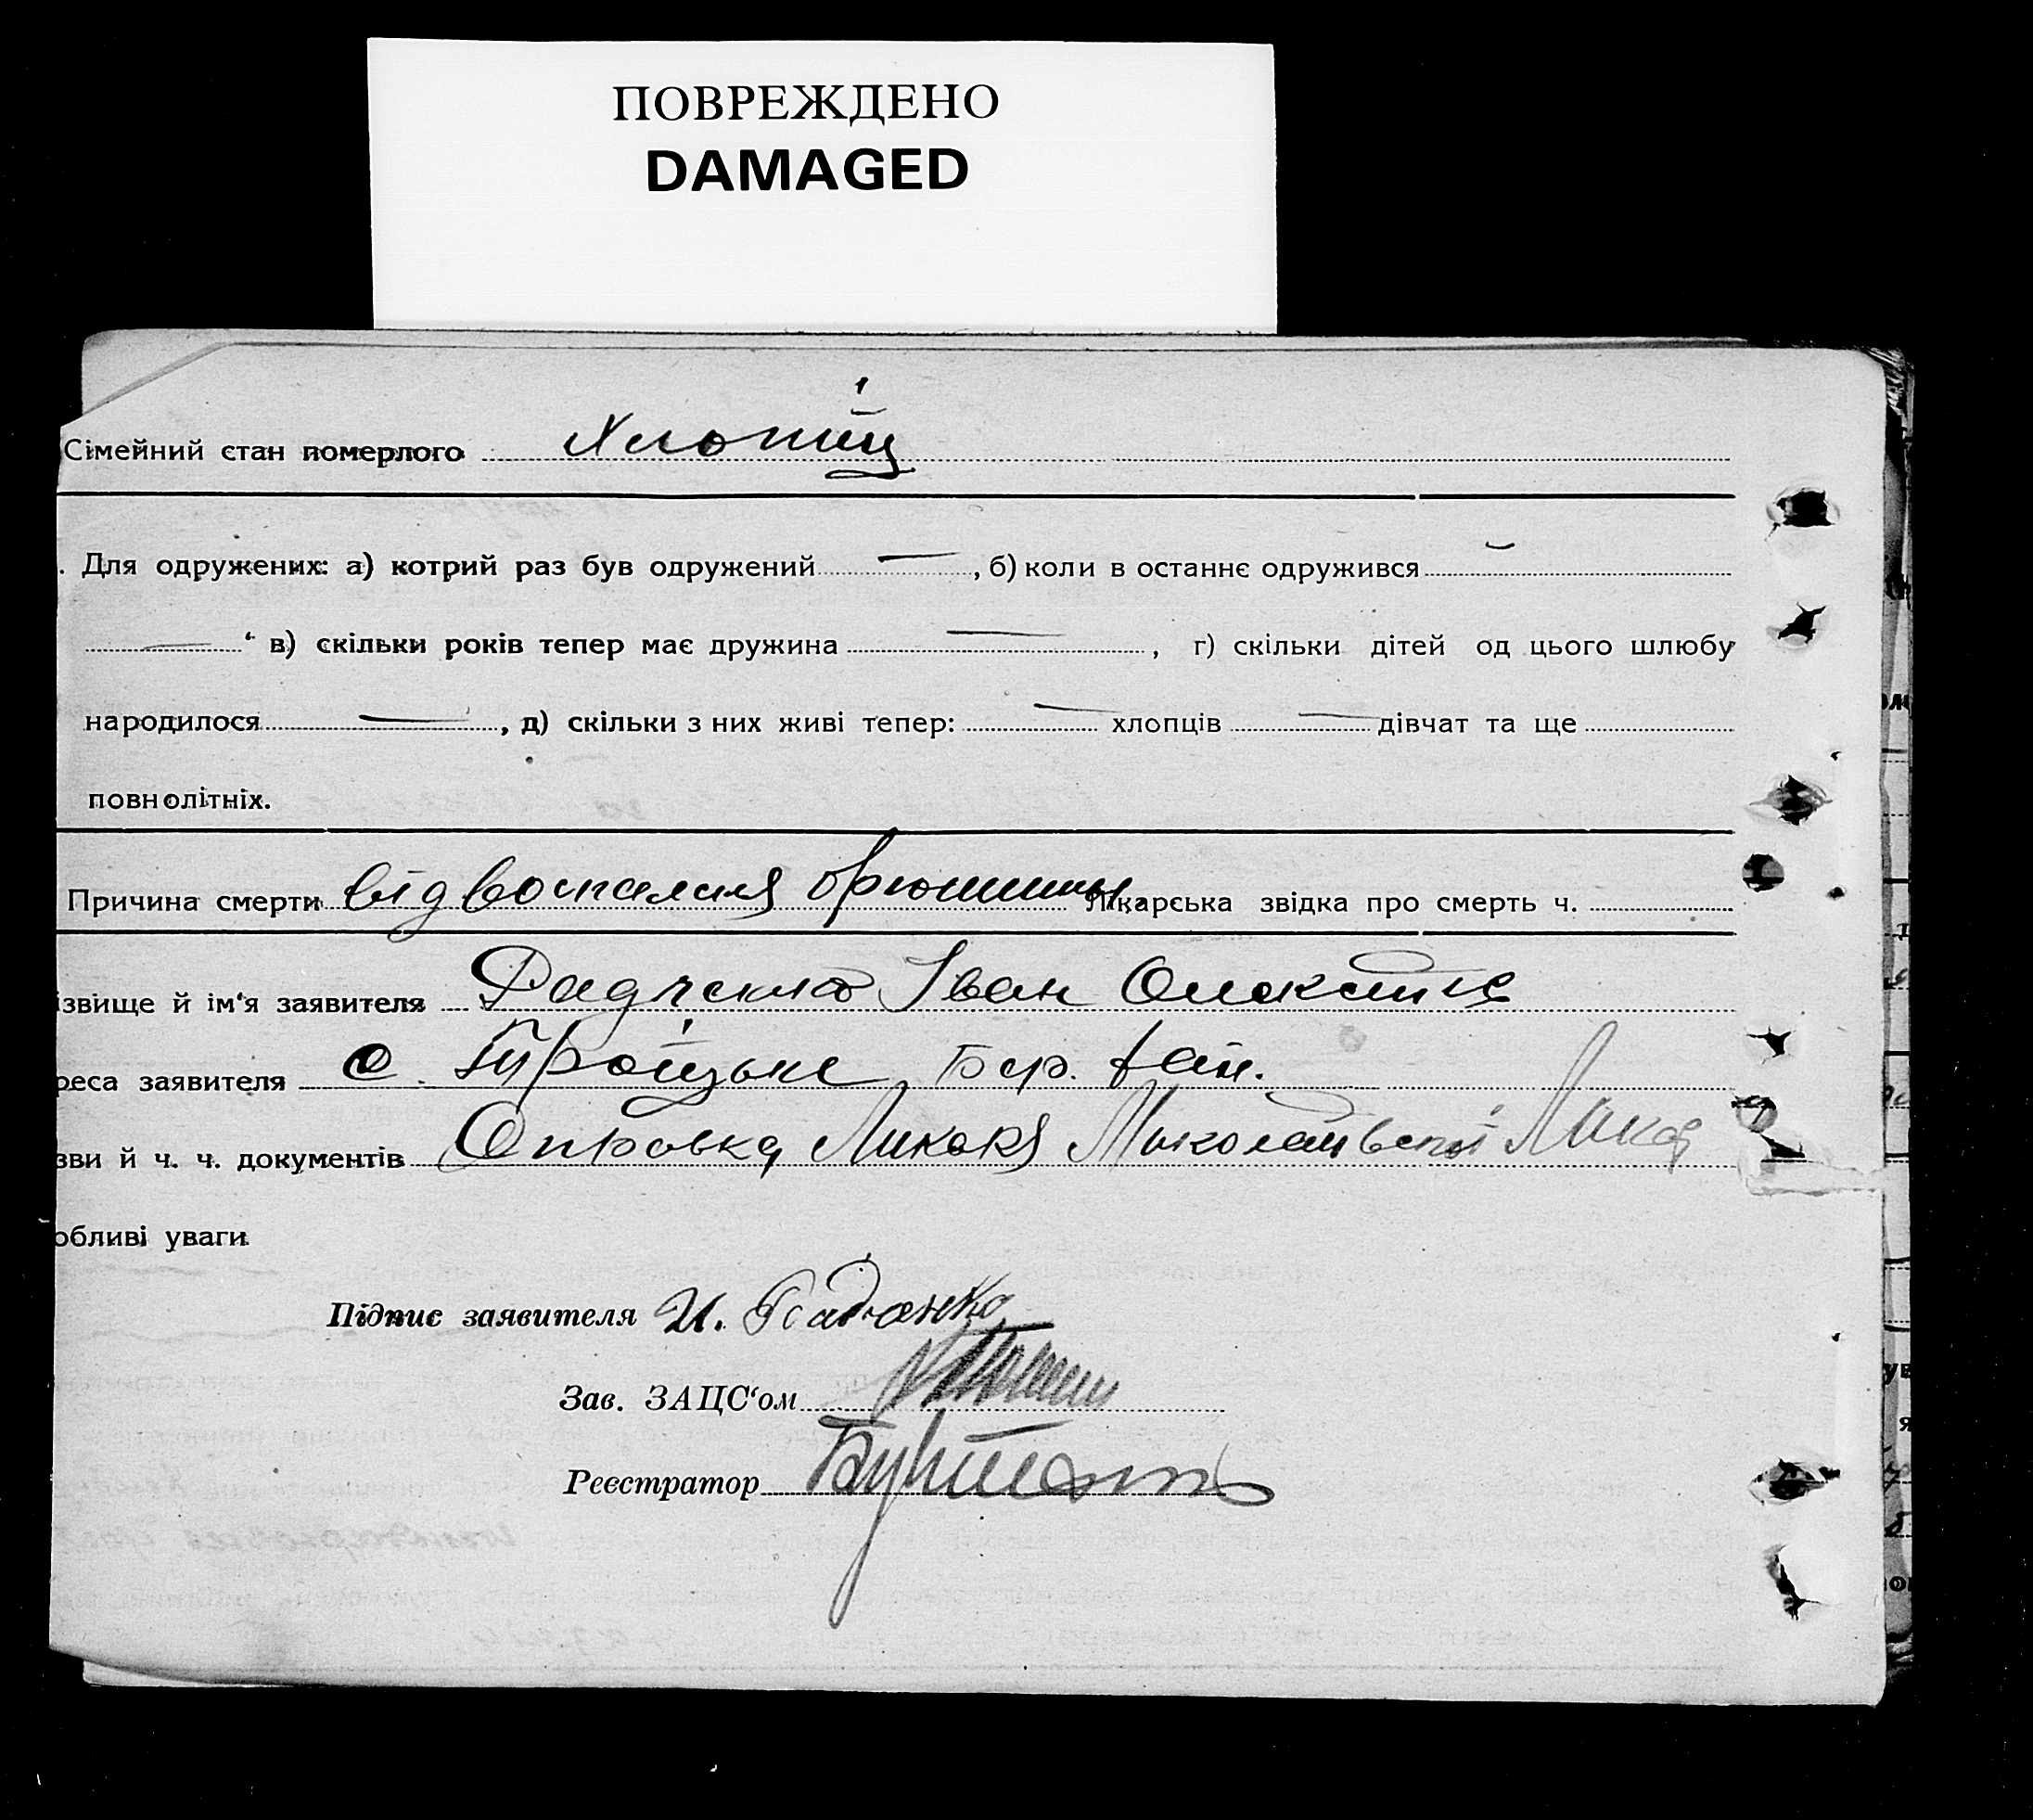 ПОВРЕЖДЕНО
DAMAGED
Сімейний стан померлого Хлопиц
. Для одружених: а) котрий раз був одружений — , б) коли в останнє одружився
— “ в) скільки років тепер має дружина — , г) скільки дітей од цього шлюбу
народилося — , д) скільки з них живі тепер: — хлопців — дівчат та ще
повнолітніх.
Причина смерти від воспаления брюшины. Лікарська звідка про смерть ч.
ізвище й ім‘я заявителя Радченко Іван
реса заявителя с. Троїцьке, Бер. рай.
зви й ч. ч. документів Справка Миколаївської
обливі уваги
Підпис заявителя И. Радченко
Зав. ЗАЦС‘ом
Реєстратор